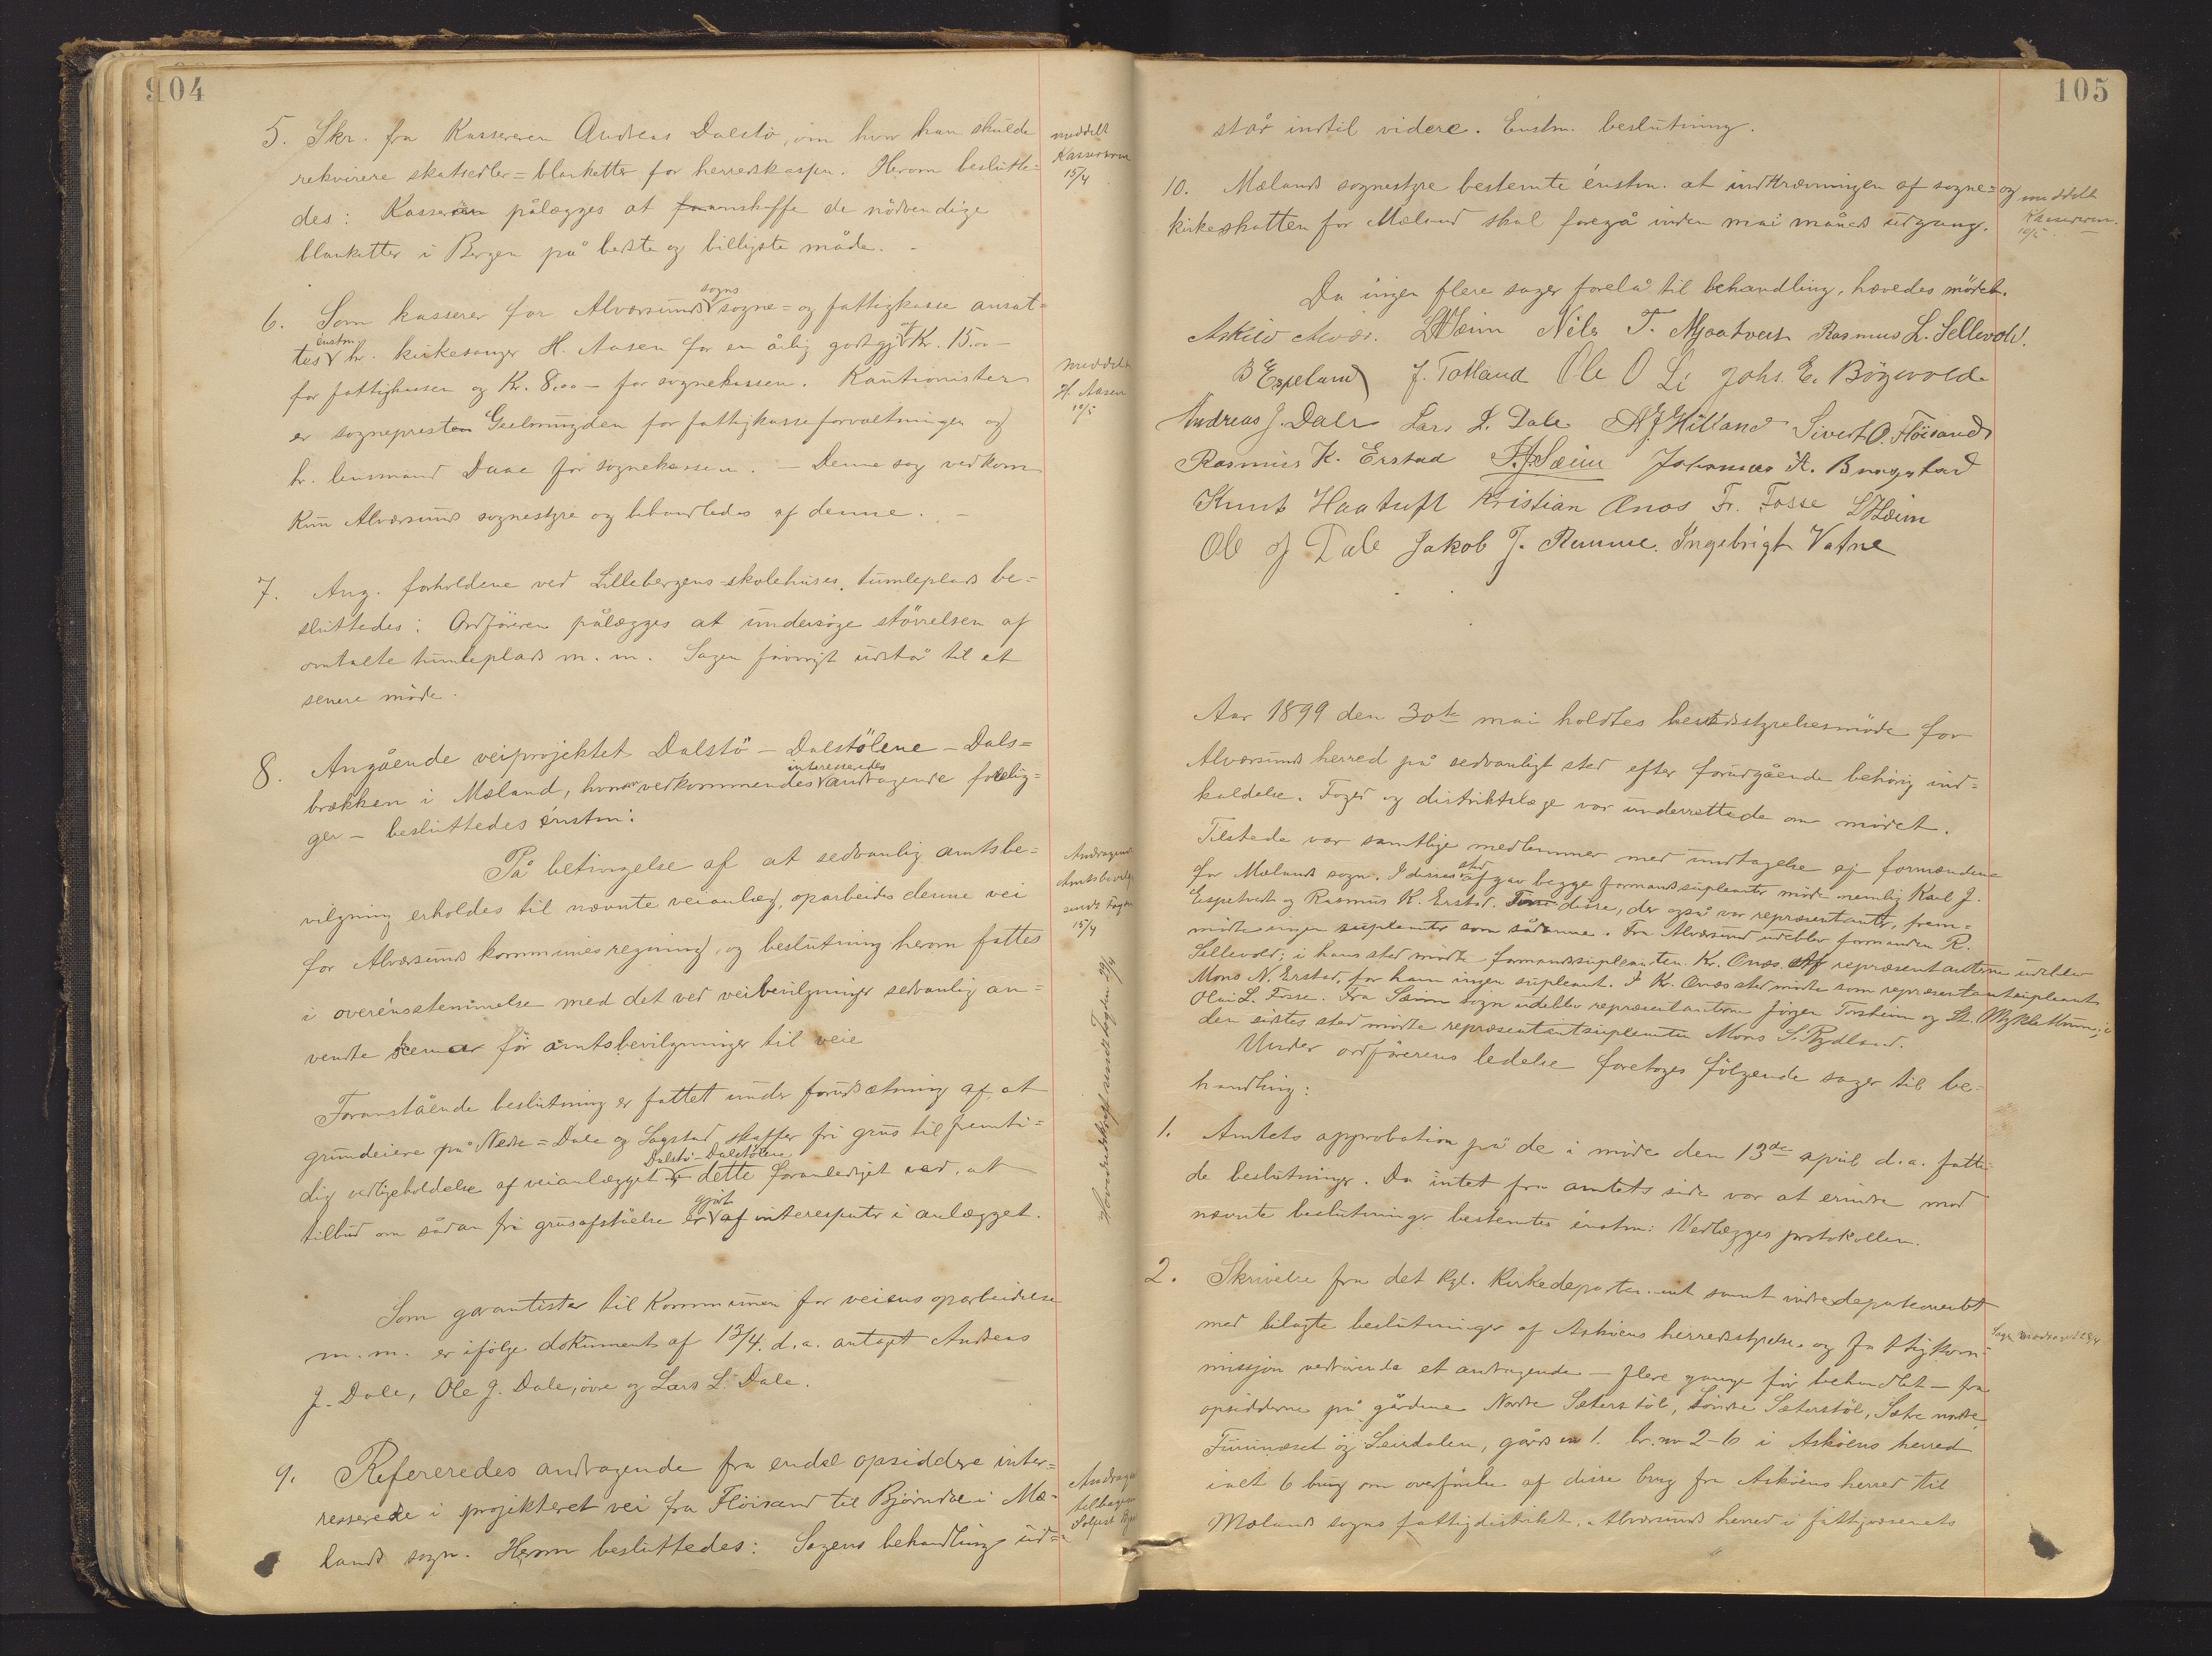 104
5. Skr. fra Kassereren Andreas Dalstö, om hvor han skulde
rekvirere skatsedler=blanketter for herredskassen. Herom beslutte=
des: Kassereren pålægges at fraanskaffe de nödvendige
blanketter i Bergen på beste og billigste måde. -
meddelt
Kassereren
15/4
6. Som kasserer for Alværsunds sogns sogne= og fattigkasse ansat=
tes énstm. hr. kirkesanger H. Aasen for en årlig godtgj. af Kr. 15.00 -
for fattigkassen og Kr. 8.00 - for sognekassen. Kautionister
er sognepresten Geelmuyden for fattigkasseforvaltningen og
hr. lensmand Daae for sognekassen. - Denne sag vedkom
kun Alværsunds sognestyre og behandledes af denne. -
meddelt
H. Aasen
10/5
7. Ang. forholdene ved Lillebergens skolehuses tumleplads be=
sluttedes: Ordföreren pålægges at undersöge störrelsen af
omtalte tumleplads m. m. Sagen forövrigt udstår til et
senere möde.
8. Angående veiprojektet Dalstö - Dalstölene - Dals=
brækken i Mæland, hvorom vedkommendes interesseredes andragende forelig=
ger - besluttedes énstm:
På betingelse af at sedvanlig amtsbe=
vilgning erholdes til nævnte veianlæg, oparbeides denne vei
for Alværsunds kommunes regning, og beslutning herom fattes
i overénsstemmelse med det ved veibevilgninger sedvanlig an=
vendte skema for amtsbevilgninger til veie
Andragende
Amtsbevilgn
sendt Fogden
15/4
Foranstående beslutning er fattet under forudsætning af at
grundeiere på Nedre=Dale og Sagstad skaffer fri grus til fremti=
dig vedligeholdelse af veianlægget Dalstö-Dalstölene dette foranlediget ved, at
tilbud om sådan fri grusafståelse er gjort af interessenter i anlægget.
sendt Fogden 29/4
Som garantister til Kommunen for veiens oparbeidelse
m. m. er ifölge dokument af 13/4. d.a. antaget Andreas
J. Dale, Ole J. Dale, övre og Lars L. Dale.
9. Refereredes andragende fra endel opsiddere inter=
resserede i projekteret vei fra Flöisand til Björndal i Mæ=
lands sogn. Herom besluttedes: Sagens behandling ud=
Andragende
tilbage
105
står indtil videre. Enstm. beslutning.
10. Mælands sognestyre bestemte énstm. at inddrævningen af sogne= og
kirkeskatten for Mæland skal foregå inden mai måneds udgang.
meddelt
Kassereren.
10/5
Da ingen flere sager forelå til behandling, hævedes mödet.
Askild Alvær. L H Sæim Nils T. Mjaatvedt Rasmus L. Sellevold.
B Espeland J. Totland Ole O Li Johs. E. Bögevold
Andreas J. Dale Lars L. Dale A J Hilland Sivert O. Flöisand
Rasmus K. Erstad H. J. Sæim Johannes A. Brægstad
Knut Haatuft Kristian Onos Fr. Fosse L Hæim
Ole J Dale Jakob J. Remme. Ingebrigt Vatne
Aar 1899 den 30te mai holdtes herredsstyrelsesmöde for
Alværsunds herred på sedvanligt sted efter forudgående behörig ind=
kaldelse. Foged og distriktslæge var underrettede om mödet.
Tilstede var samtlige medlemmer med undtagelse af formændene
for Mælands sogn. I disses sted afgav begge formandssupleanter möde nemlig Karl J.
Espetvedt og Rasmus K. Erstad. For disse, der også var repræsentanter, frem=
mödte ingen supleanter som sådanne. Fra Alværsund udeblev formanden R.
Sellevold; i hans sted mödte formandssupleanten Kr. Onos. Af repræsentanterne udeblev
Mons N. Erstad, for ham ingen supleant. I K. Onos sted mödte som repræsentantsupleant
Olai L. Fosse. Fra Sæim sogn udeblev repræsentanterne Jörgen Torsheim og St. Mykletun; i
den sidstes sted mödte repræsentantsupleanten Mons S. Rydland.
Under ordförerens ledelse foretoges fölgende sager til be=
handling:
1. Amtets approbation på de i möde den 13de april d.a. fatte=
de beslutninger. Da intet fra amtets side var at erindre mod
nævnte beslutninger bestemtes énstm: Vedlægges protokollen.
2. Skrivelse fra det kgl. Kirkedepartement samt indredepartementet
med bilagte beslutninger af Asköens herredsstyrelse og fattigkom=
missjon vedrörende et andragende - flere gange för behandlet - fra
opsidderne på gårdene Nordre Sæterstöl, Söndre Sæterstöl, Sætre nedre,
Furunæset og Leirdalen, gårds no 1. br. no 2-6 i Asköens herred
ialt 6 brug om overförelse af disse brug fra Asköens herred til
Mælands sogns fattigdistrikt, Alværsunds herred i fattigvæsenets